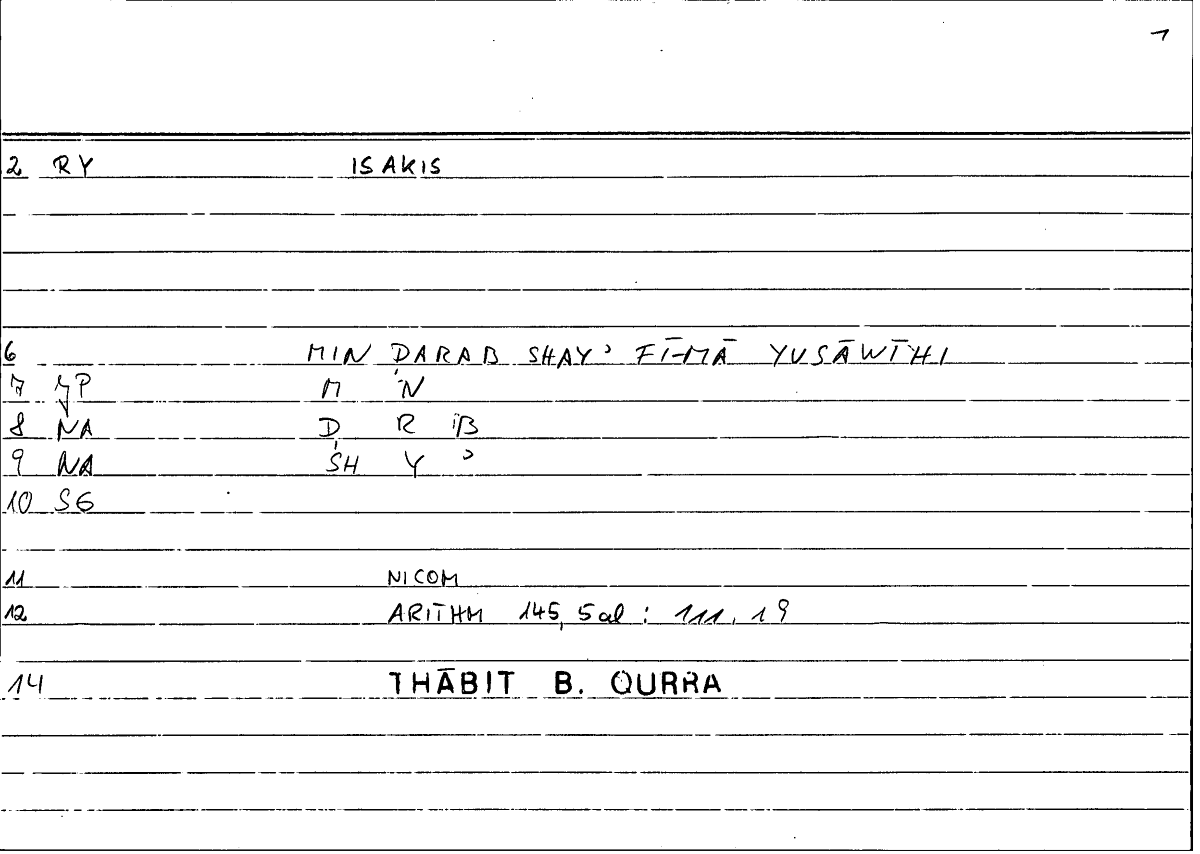 1
2 RY ISAKIS
6 MIN ḌARAB SHAY' FĪ-MĀ YUSĀWĪHI
7 JP M N
8 NA Ḍ R B
9 NA SH Y '
10 SG
11 NICOM
12 ARITHM 145, 5al : 111, 19
14 THĀBIT B. QURRA